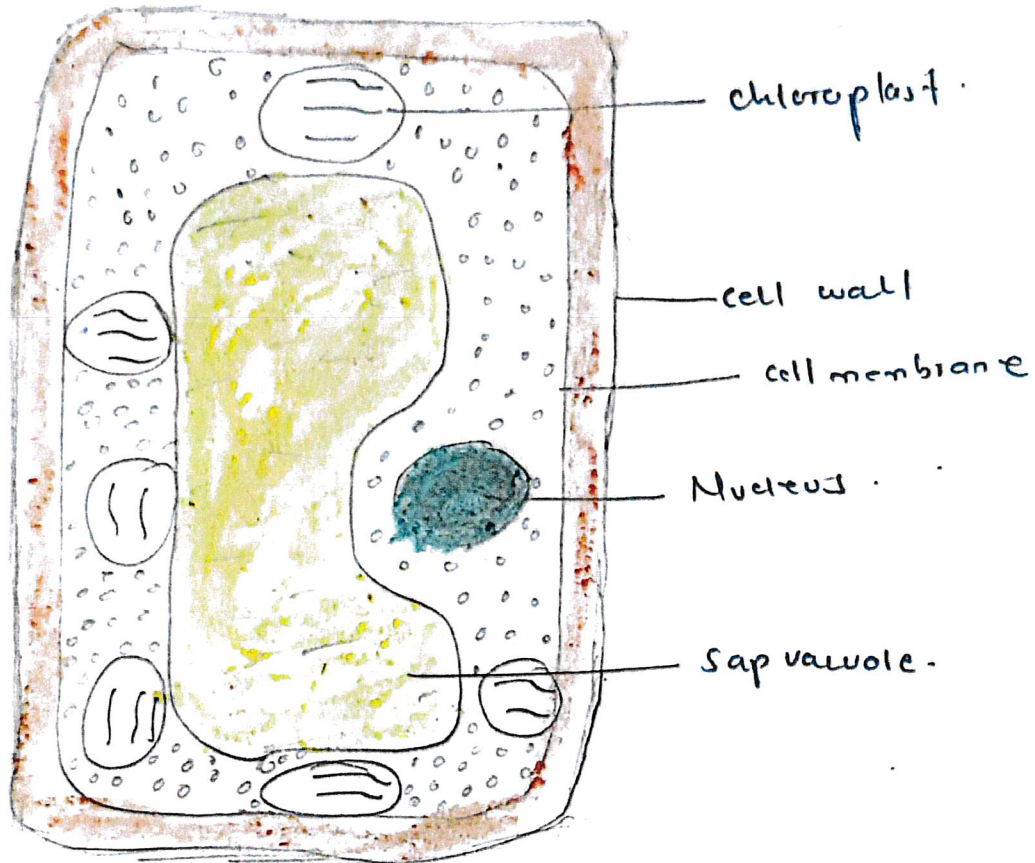 chloroplast.
cell wall
cell membrane
Nucleus.
Sap vacuole.